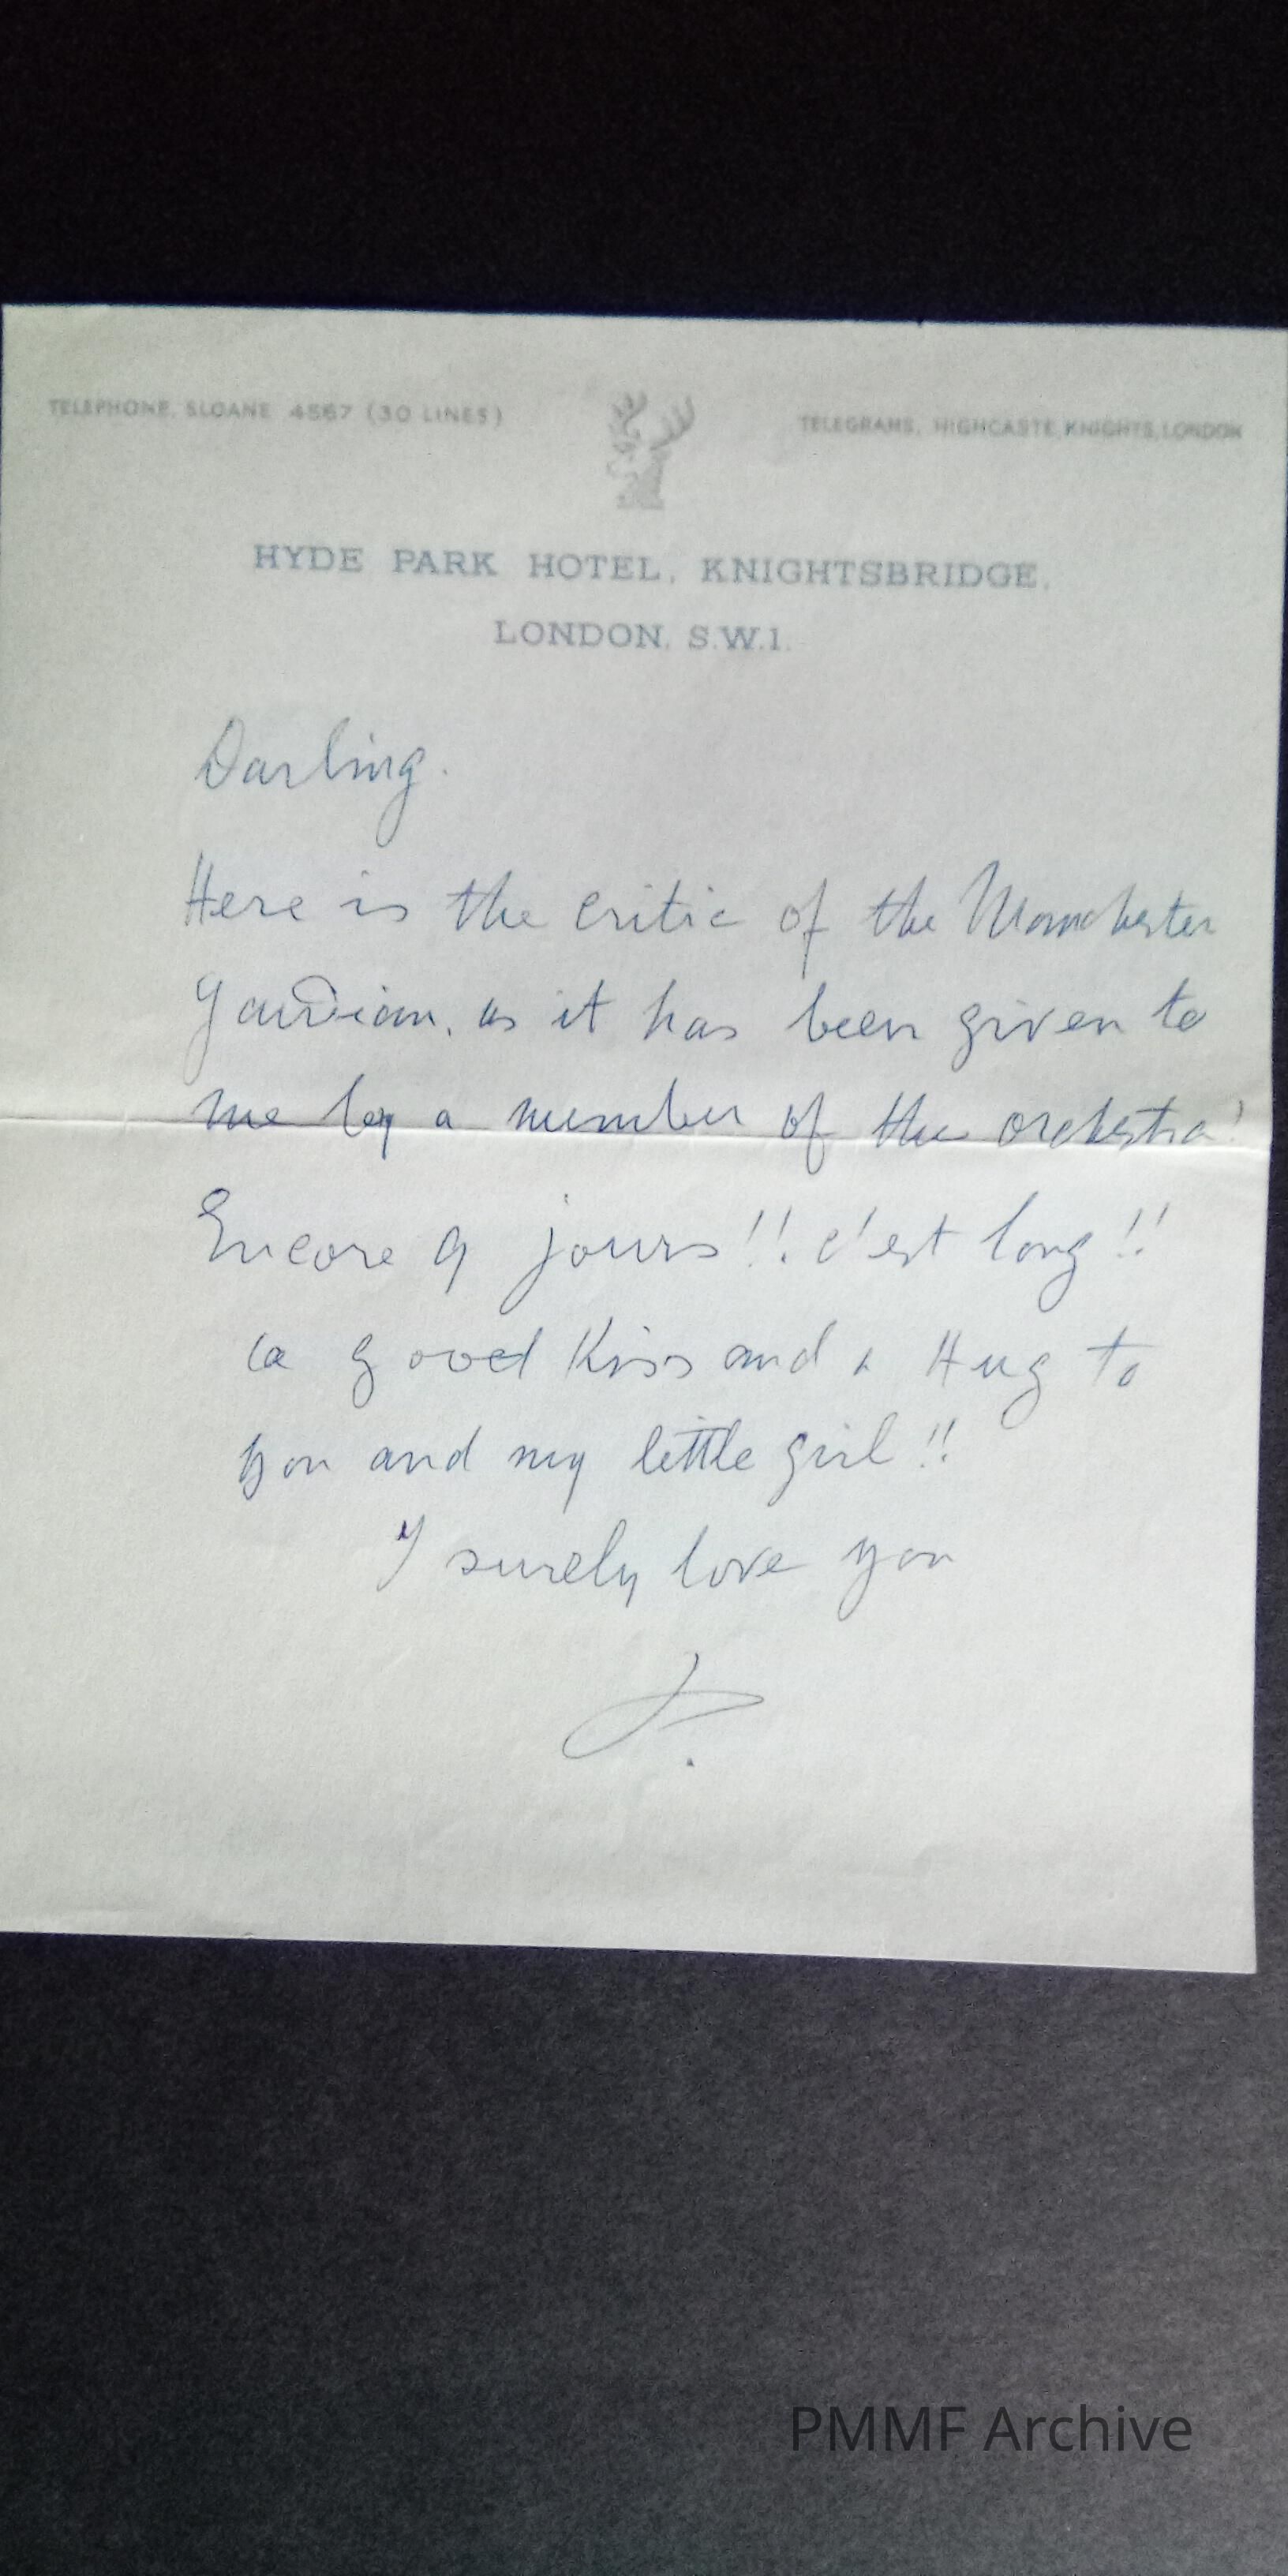 TELEPHONE, SLOANE 4567 (30 LINES)
TELEGRAMS, HIGHCASTE, KNIGHTS, LONDON
HYDE PARK HOTEL, KNIGHTSBRIDGE,
LONDON, S.W.1.
Darling.
Here is the critic of the Manchester
Gardian, as it has been given to
me by a member of the orchestra!
Encore 9 jours!! c'est long!!
a good Kiss and a Hug to
you and my little girl!!
I surely love you
PMMF Archive